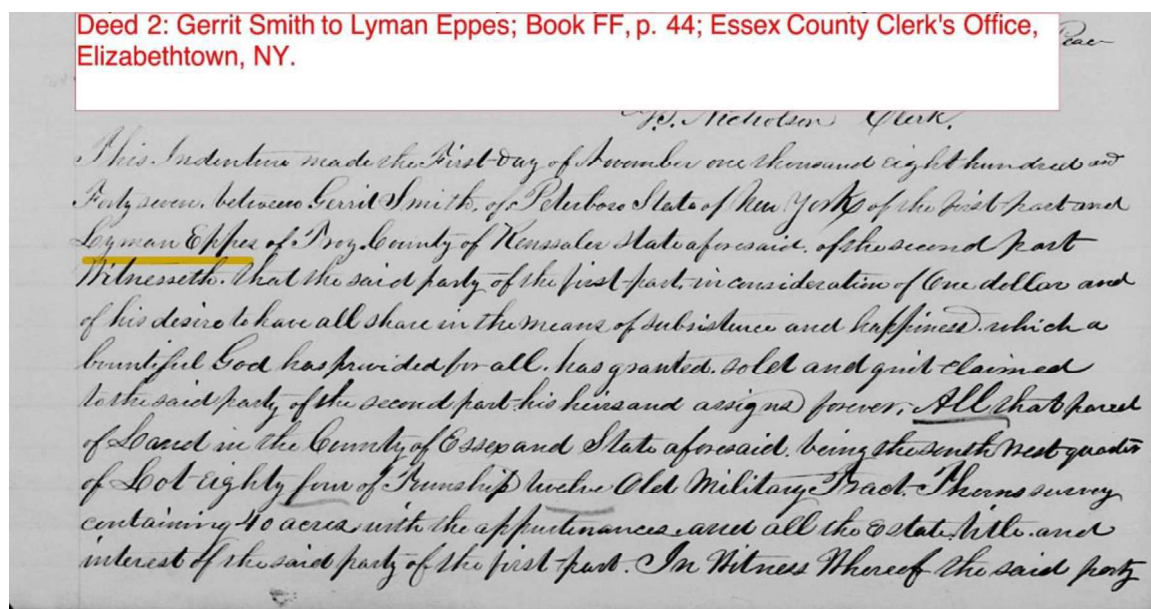 Deed 2: Gerrit Smith to Lyman Eppes; Book FF, p. 44; Essex County Clerk's Office,
Elizabethtown, NY.
Peace
Nicholson Clerk.
This Indenture made the First Day of November one thousand eight hundred and
Forty seven. between Gerrit Smith, of Peterboro State of New York of the first part and
Lyman Eppes of Troy County of Renssaler State aforesaid. of the second part
Witnesseth. that the said party of the first part, in consideration of One dollar and
of his desire to have all share in the means of subsistence and happiness which a
bountiful God has provided for all. has granted. sold and quit claimed
to the said party of the second part his heirs and assigns forever, All that parcel
of Land in the County of Essex and State aforesaid. being the south west quarter
of Lot eighty four of Township twelve Old Military Tract. Thorns survey
containing 40 acres with the appurtenances and all the Estate. title. and
interest of the said party of the first part. In Witness Whereof the said party